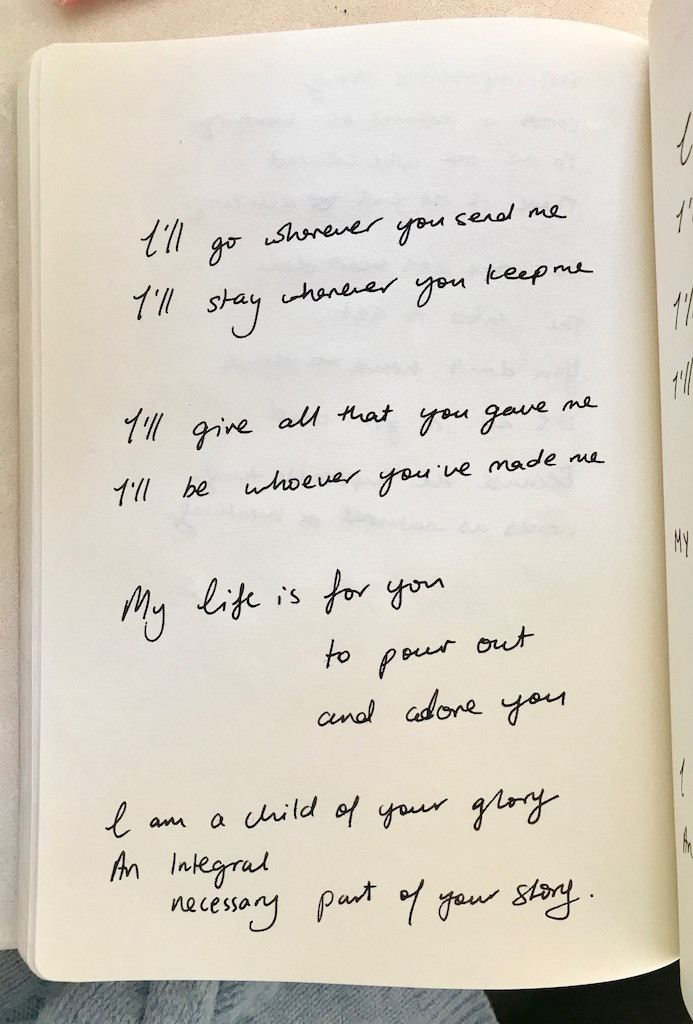 I'll go wherever you send me
I'll stay wherever you keep me
I'll give all that you gave me
I'll be whoever you've made me
My life is for you
to pour out
and adore you
I am a child of your glory
An Integral
necessary part of your story.